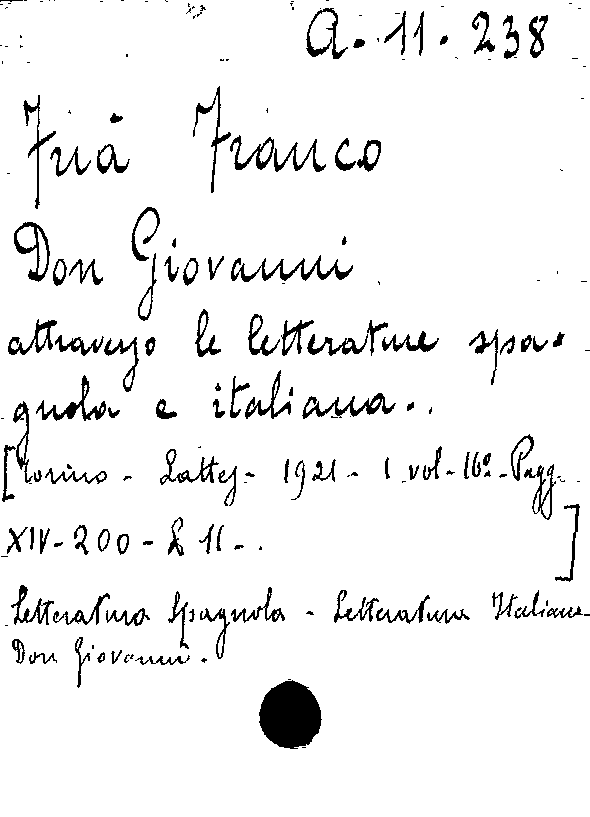 A. 11. 238
Frià Franco
Don Giovanni
attraverso le letterature spa-
gnola e italiana.
[Torino - Lattes - 1921 - 1 vol - 16º - Pagg.
XIV - 200 - L 11 - .]
Letteratura Spagnola - Letteratura Italiana
Don Giovanni.